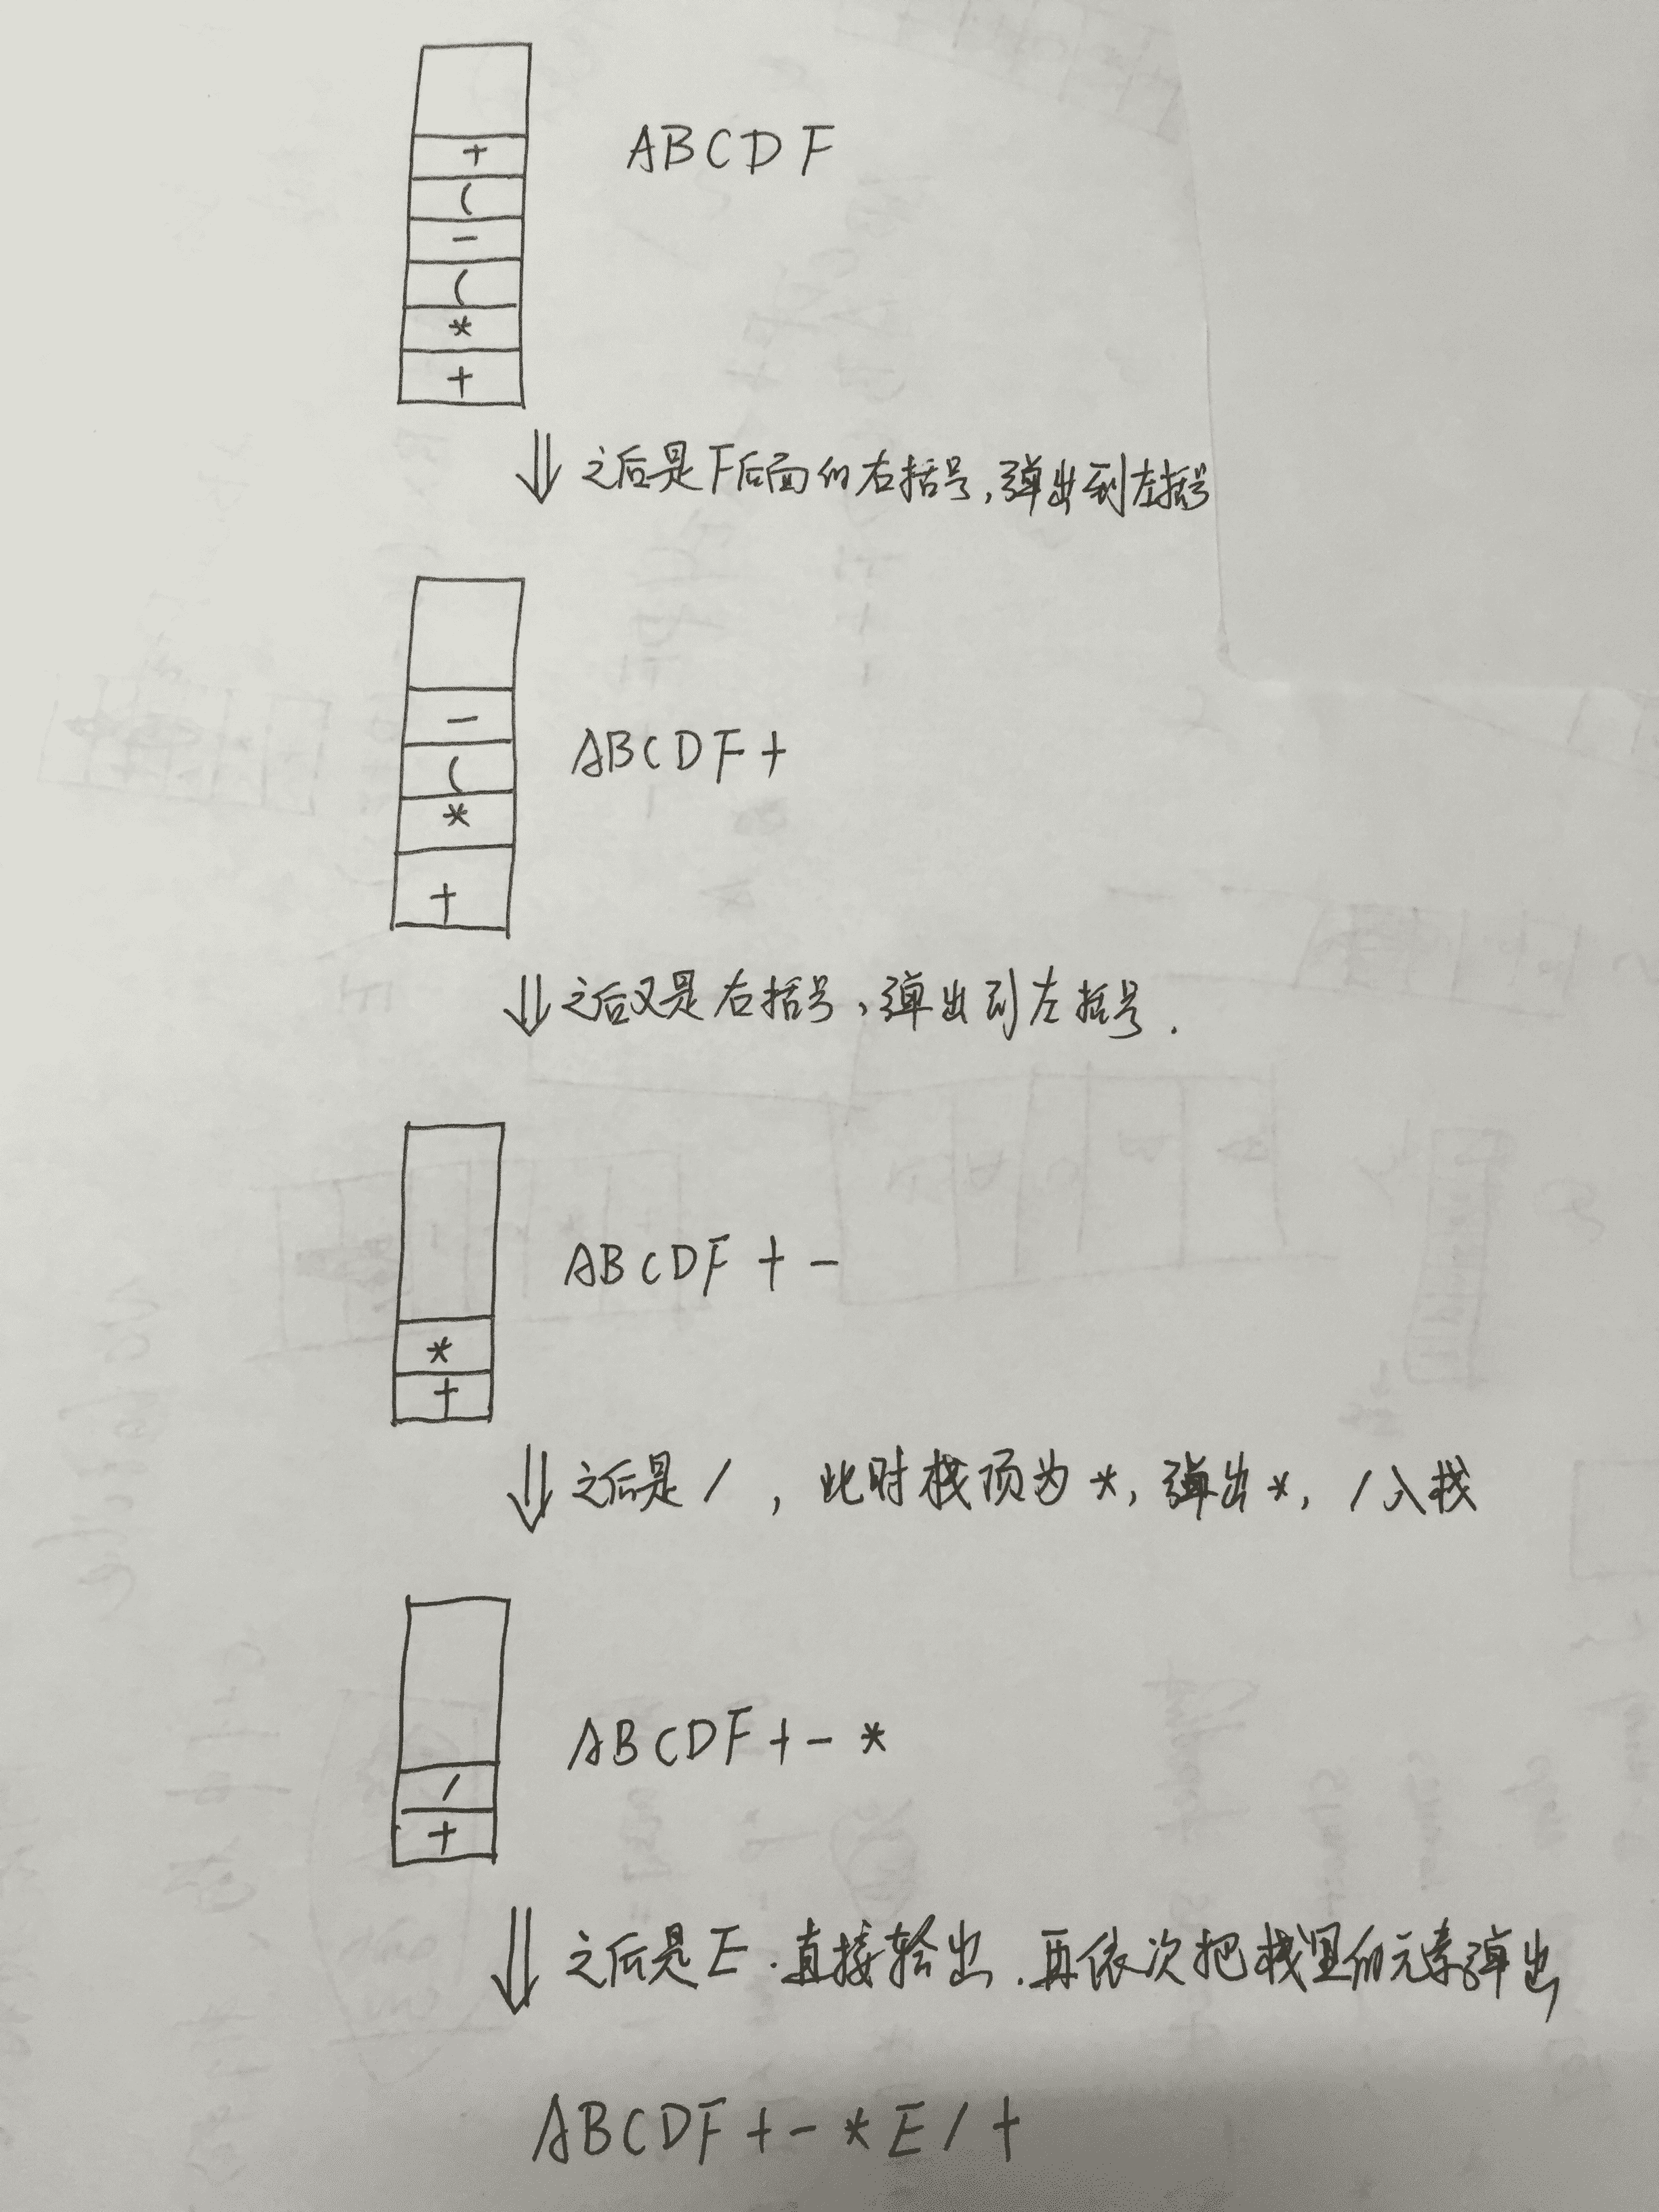 +
(
-
(
*
+
ABCDF
之后是F后面的右括号,弹出到左括号
-
(
*
+
ABCDF+
之后又是右括号,弹出到左括号.
*
+
ABCDF+-
之后是/,此时栈顶为*,弹出*,/入栈
/
+
ABCDF+-*
之后是E.直接输出.再依次把栈里的元素弹出
ABCDF+-*E/+